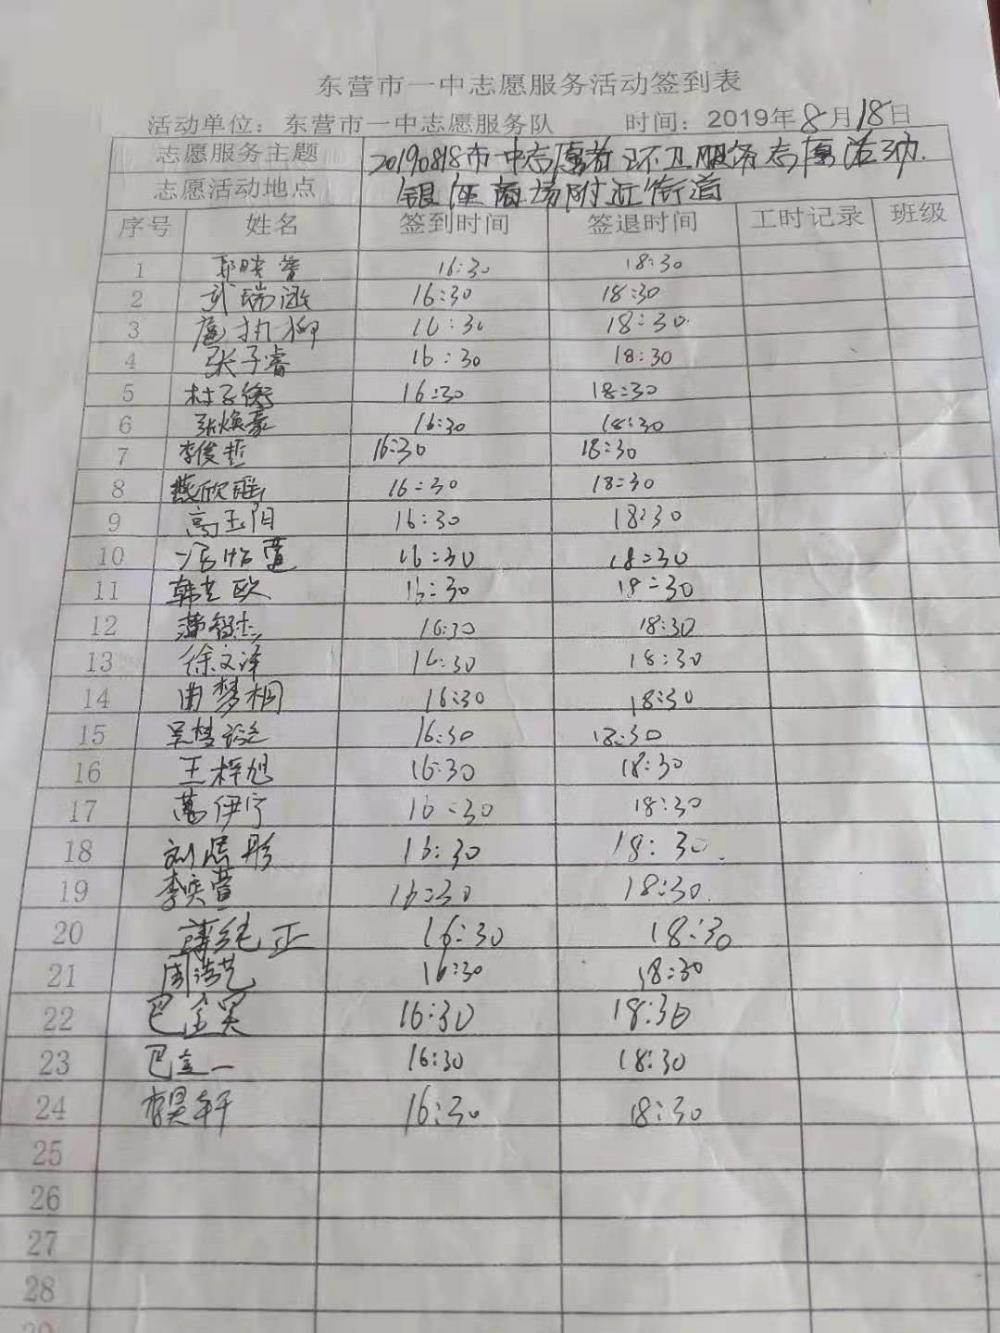 东营市一中志愿服务活动签到表
活动单位：东营市一中志愿服务队 时间：2019年8月18日
志愿服务主题 20190818市一中志愿者环卫服务志愿活动.
志愿活动地点 银座商场附近街道
序号 姓名 签到时间 签退时间 工时记录 班级
1 郭晓萱 16:30 18:30
2 武瑞涵 16:30 18:30
3 16:30 18:30
4 张子睿 16:30 18:30
5 杜子衡 16:30 18:30
6 张焕豪 16:30 18:30
7 李俊哲 16:30 18:30
8 燕欣瑶 16:30 18:30
9 高玉阳 16:30 18:30
10 16:30 18:30
11 韩 欧 16:30 18:30
12 薄智杰 16:30 18:30
13 徐文泽 16:30 18:30
14 曲梦桐 16:30 18:30
15 吴梦 16:30 18:30
16 王梓旭 16:30 18:30
17 葛伊宁 16:30 18:30
18 刘 彤 16:30 18:30.
19 李奕萱 16:30 18:30.
20 薄纯正 16:30 18:30
21 周 艺 16:30 18:30
22 巴金昊 16:30 18:30
23 巴金一 16:30 18:30
24 李昊轩 16:30 18:30
25
26
27
28